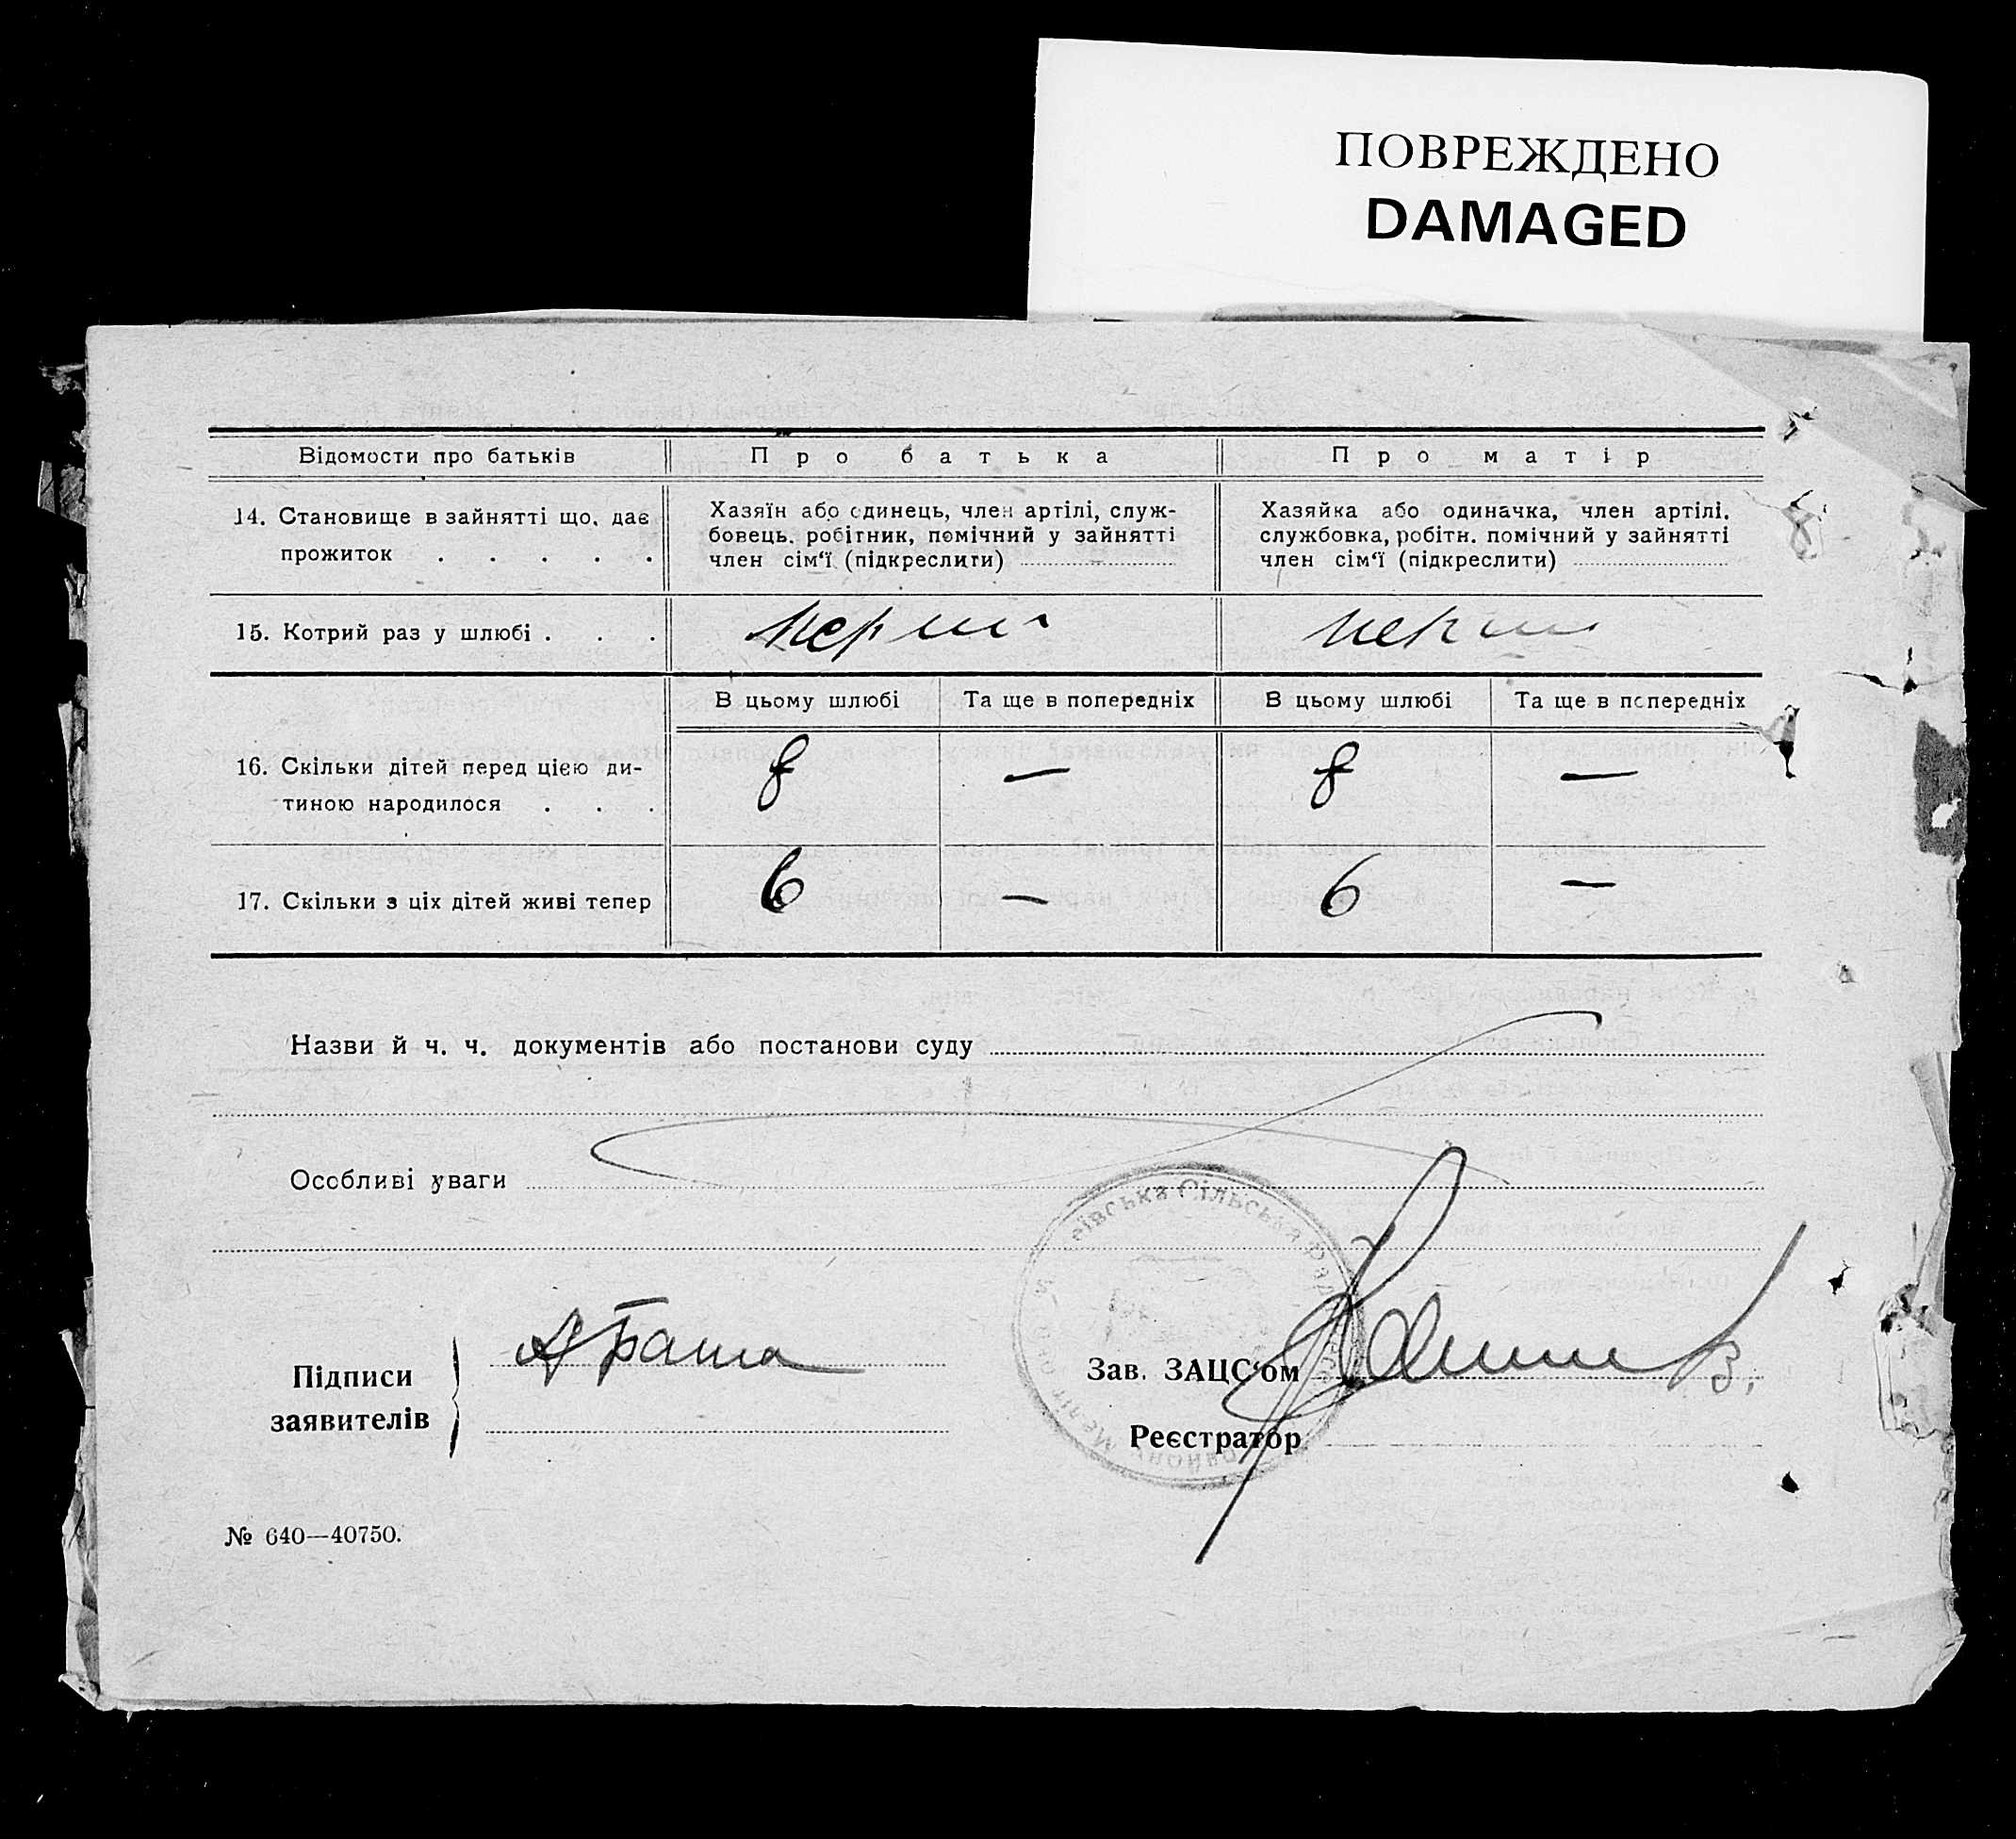 ПОВРЕЖДЕНО
DAMAGED
Відомости про батьків
Про батька
Про матір
14. Становище в зайнятті що, дає
прожиток . . . . .
Хазяїн або одинець, член артілі, служ-
бовець. робітник, помічний у зайнятті
член сім‘ї (підкреслити)
Хазяйка або одиначка, член артілі.
службовка, робітн. помічний у зайнятті
член сім‘ї (підкреслити)
15. Котрий раз у шлюбі . . .
перший
перший
В цьому шлюбі
Та ще в попередніх
В цьому шлюбі
Та ще в попередніх
16. Скільки дітей перед цією ди-
тиною народилося . . .
8 — 8 —
17. Скільки з ціх дітей живі тепер
6 — 6 —
Назви й ч. ч. документів або постанови суду
Особливі уваги
Сільська Рад
Підписи
заявителів
Зав. ЗАЦС‘ом
Реєстратор
№ 640—40750.